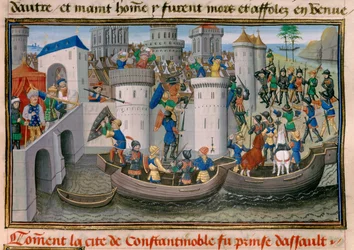 dautre et maint homme y furent mors et affolez en venue
Coment la cite de Constantinoble fu prinse dassault